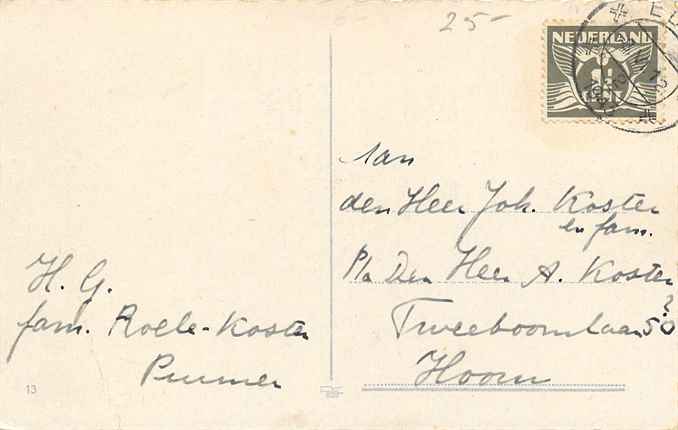 25-
NEDERLAND
1½
CENT
Aan
den Heer Joh. Koster
en fam.
P/a Den Heer A. Koster
?
Tweeboomlaan 50
Hoorn
H. G.
fam. Roele-Koster
Purmer
13